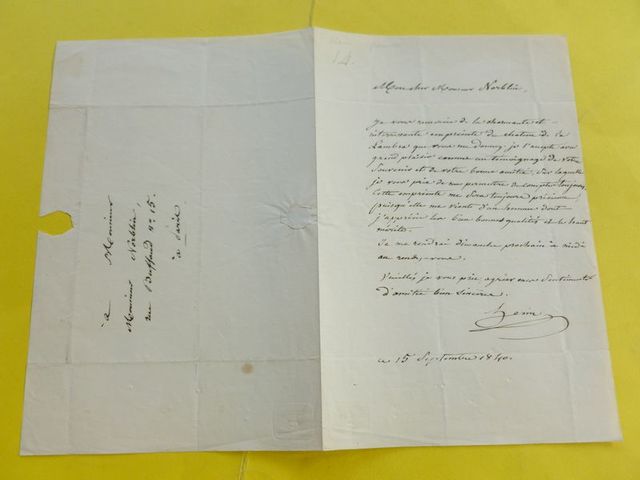 à
Monsieur
Monsieur Norblin,
rue Buffaud n° 15.
à Paris
14.
Mon cher Monsieur Norblin,
Je vous remercie de la charmante et
intéressante empreinte du
que vous me donnez; je l'accepte avec
grand plaisir comme un témoignage de votre
Souvenir et de votre bonne amitié, Sur laquelle
je vous prie de me permettre de compter toujours,
Cette empreinte me Sera toujours précieuse
puisqu'elle me vient d'un homme dont
j'apprécie bien les bonnes qualités et le haut
mérite.
Je me rendrai dimanche prochain à midi
au rendez-vous.
Veuillez je vous prie, agréer mes Sentiments
d'amitié bien Sincères.
ce 15 Septembre 1840.